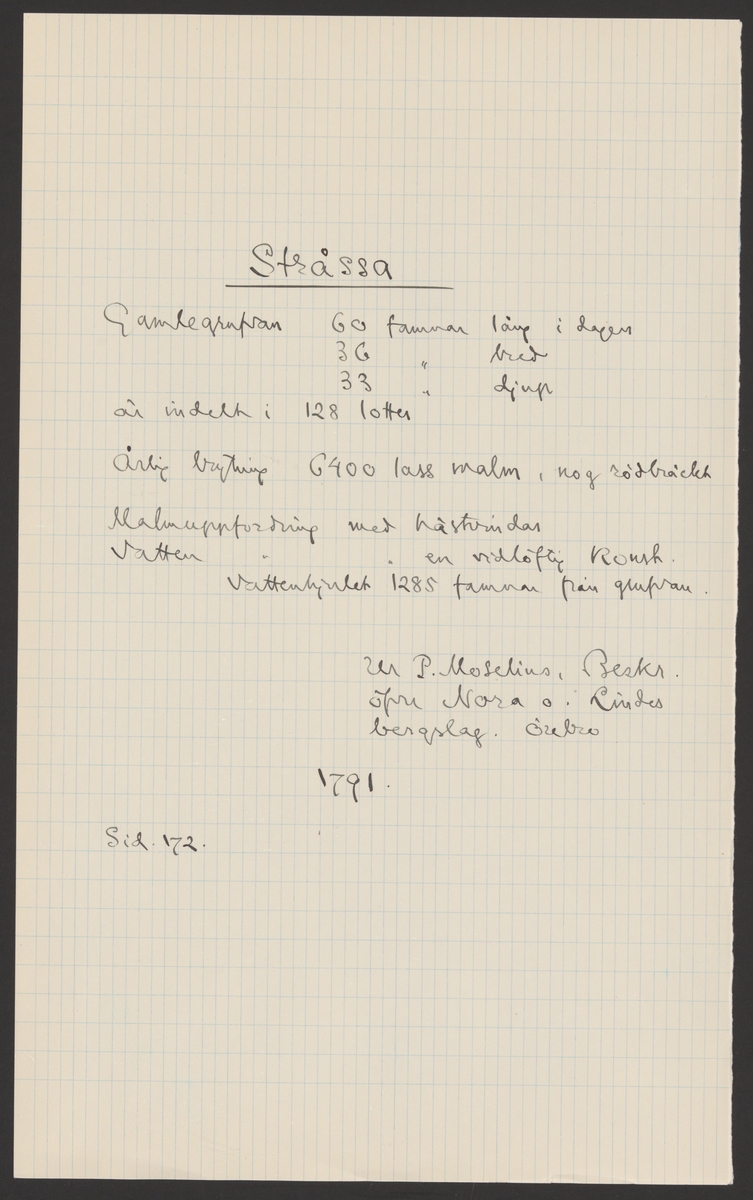 Stråssa
Gamlegrufvan 60 famnar lång i dagen
36 " bred
33 " djup
är indelt i 128 lotter
Årlig brytning 6400 lass malm, nog rödbräckt
Malmuppfordring med hästvindar
Vatten " " en vidlöftig Konst.
Vattenhjulet 1285 famnar från grufvan.
Ur P. Moselius, Beskr.
öfvr Nora o. Lindes
bergslag. Örebro
1791.
Sid. 172.